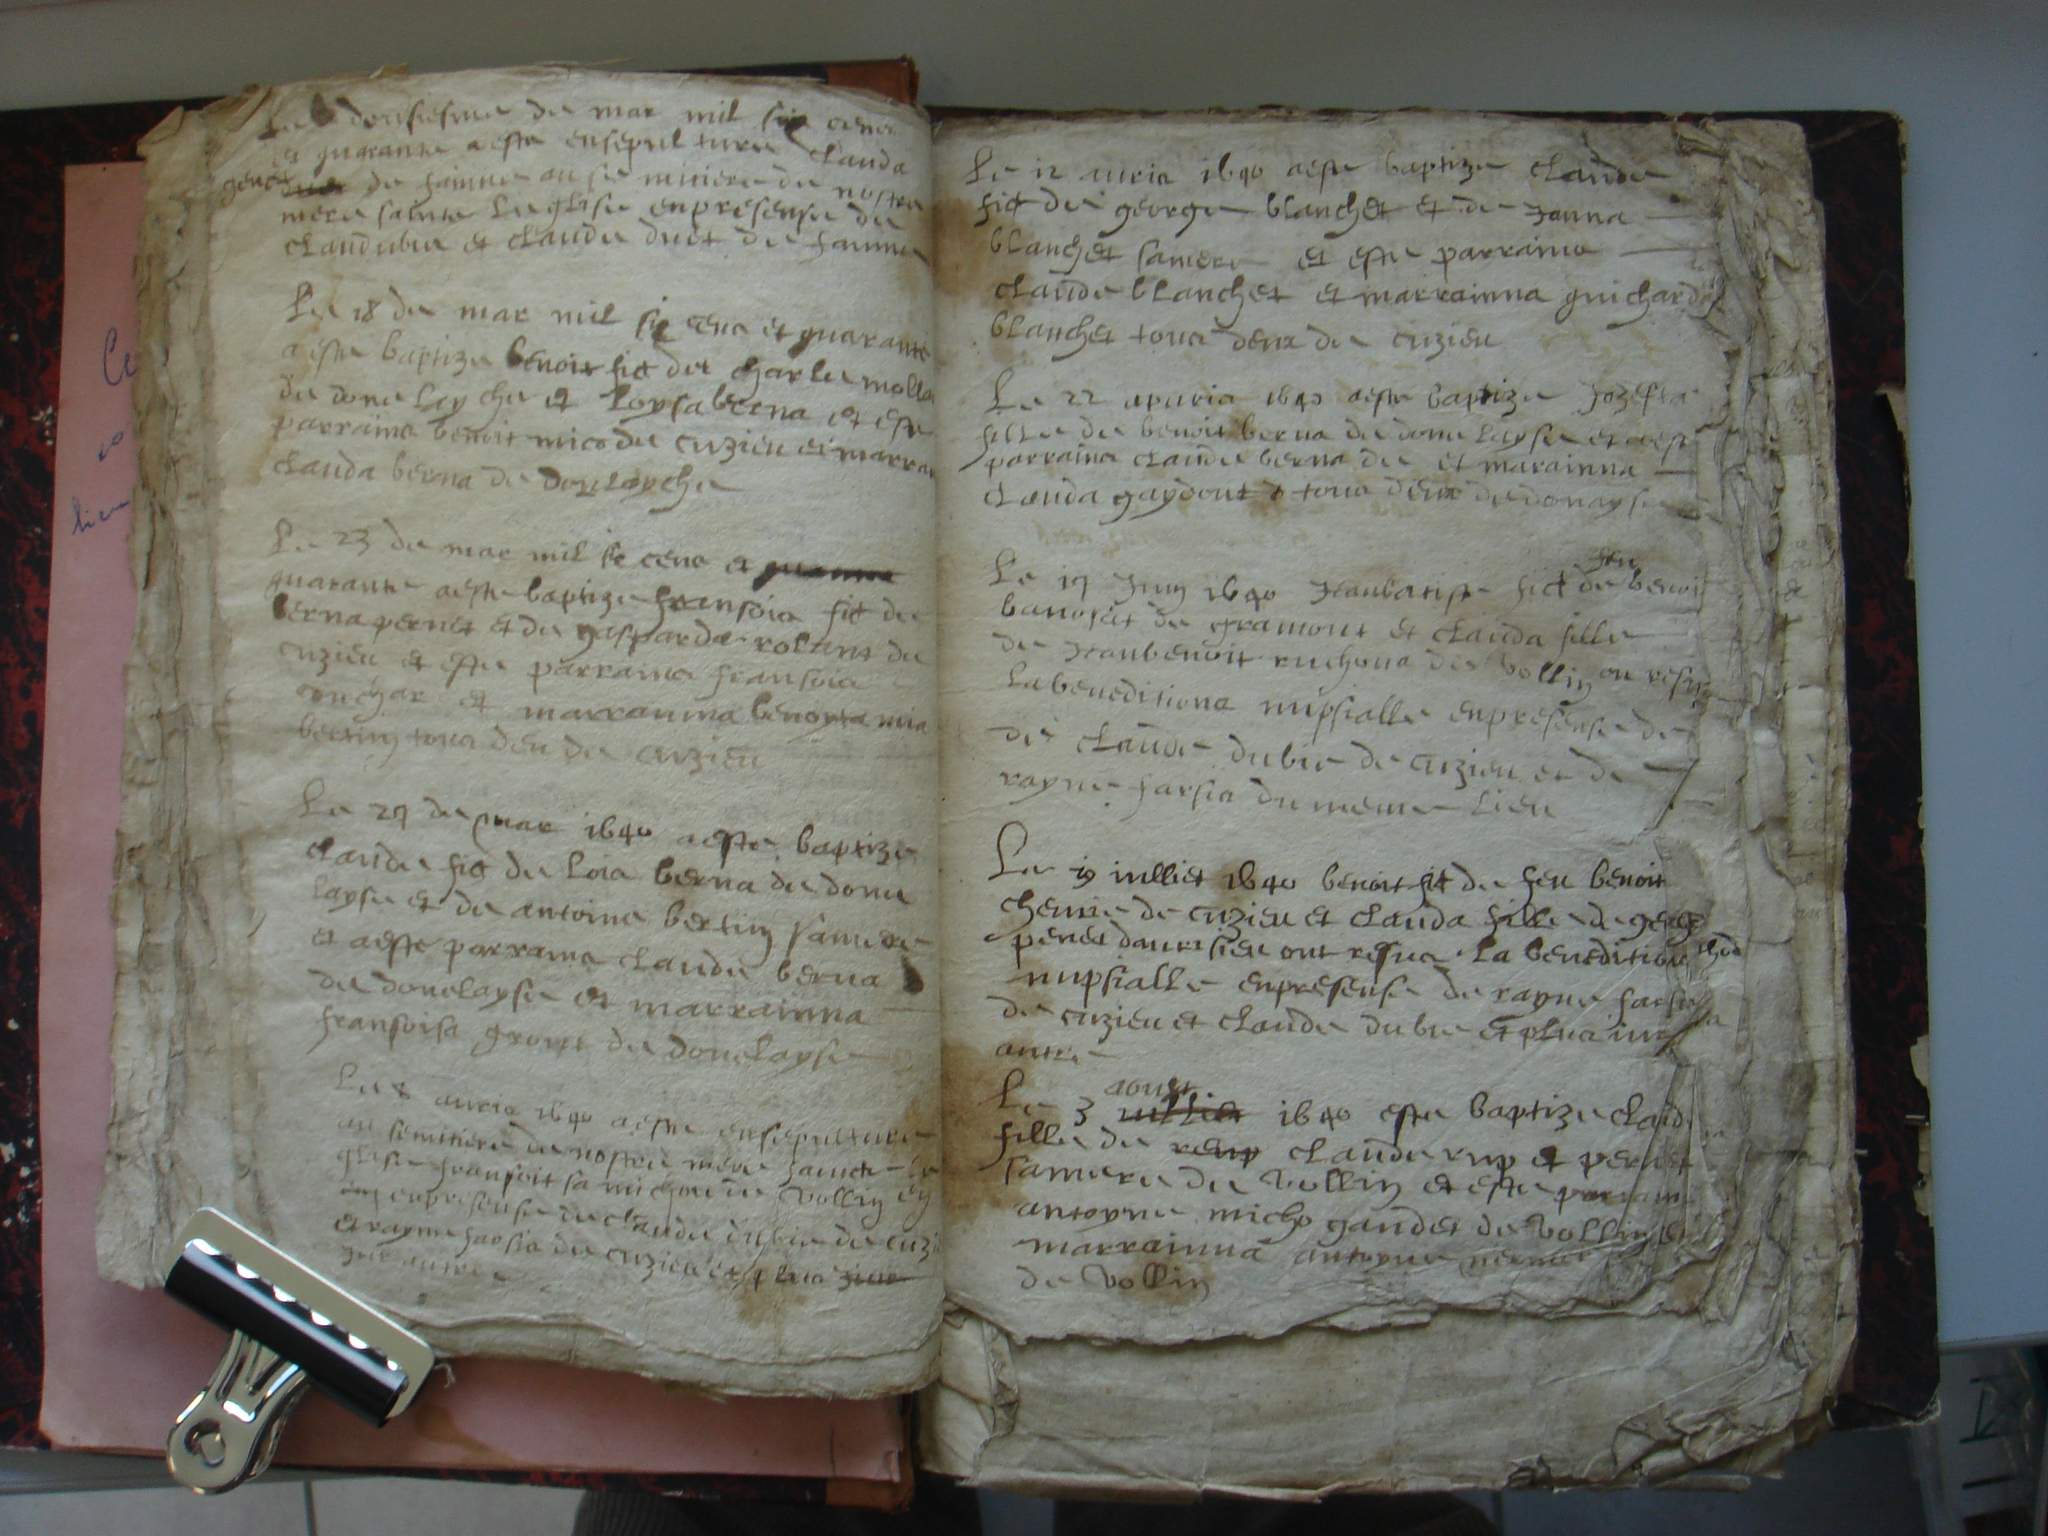 Le dousiesme de mar mil six cens
et quarante a este ensepulture Clauda
de faimne au semitiere de nostre
mere sainte Leglise enpresense de
Claudubie et Claude duet de faimne
Le 18 de mar mil si cens et quarante
a este baptize benoit fit de charle molla
de donelayche et Loysa berna et este
parrains benoit mico de cuzieu et marra
Clauda berna de donelayche
Le 23 de mar mil si cens et
quarante aeste baptize fransois fit de
berna pernet et de gasparde rolant de
cuzieu et este parrains fransois
cuchar et marrainna benoyta mia
bertin tous deu de cuzieu
Le 29 de mar 1640 aeste baptize
claude fit de Lois berna de done
layse et de antoine bertin samere
et aeste parrains claude berna
de donelayse et marrainna
fransoisa de donelayse
Le 8 auris 1640 aeste ensepulture
au semitiere de nostre mere sainte le
glise fransoit de Vollin
enpresense de claude dubie de cuzi
et rayme farsis de cuzieu et plus
autre
Le 12 auris 1640 aeste baptize Claude
fit de george blanchet et de Janna
blanchet samere et este parrains
claude blanchet et marrainna guicharda
blanchet tous deux de cuzieu
Le 22 apuris 1640 aeste baptize Jozefta
fille de benoit berna de done layse et aest
parrains claude berna de et marainna
Clauda gaydont tous deux de donayse
Le 19 Juin 1640 Jeanbatiste fit de feu benoi
de gramont et clauda fille
de Jeanbenoit ruchona de Vollin on resu
La beneditions nupsialle enpresense de
de Claude dubie de cuzieu et de
rayme farsis du meme Lieu
Le 19 iulliet 1640 benoit fit de feu benoit
de cuzieu et clauda fille de george
penet ont resus La benedition
nupsialle enpresense de rayme farsis
de cuzieu et claude dubie et plus iurs
autre
aoust
Le 3 iulliet 1640 este baptize claud
fille de claude rup et pernet
samere de Vollin et este parrain
antoyne micho gaudet de Vollin et
marrainna antoyne
de Vollin